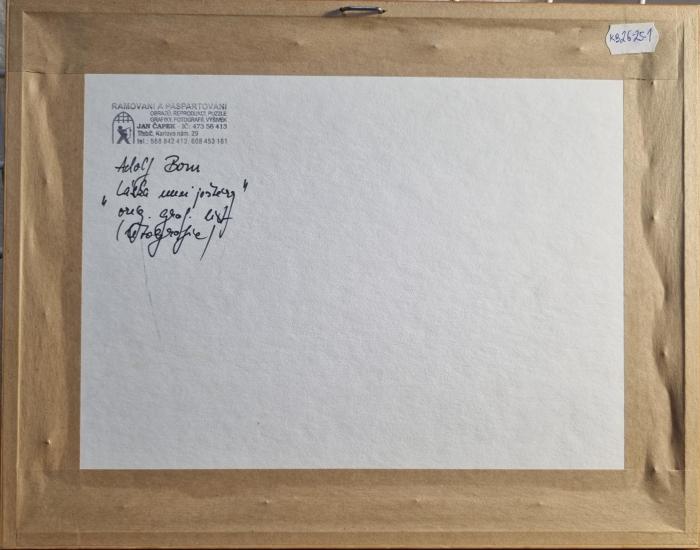 KB2625-1
RÁMOVÁNÍ A PASPARTOVÁNÍ
OBRAZŮ, REPRODUKCÍ, PUZZLE
GRAFIKY, FOTOGRAFIÍ, VÝŠIVEK
JAN ČAPEK - IČ: 473 56 413
Třebíč, Karlovo nám. 29
tel.: 568 842 412, 608 453 161
Adolf Born
"Láska mezi ještěry"
orig. graf. list
(litografie)